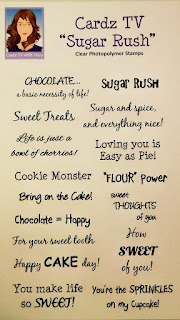 Cardz TV
"Sugar Rush"
Clear Photopolymer Stamps
CHOCOLATE...
a basic necessity of life!
Sugar RUSH
Sweet Treats
Sugar and spice,
and everything nice!
Life is just a
bowl of cherries!
Loving you is
Easy as Pie!
Cookie Monster
"FLOUR" Power
Bring on the Cake!
sweet
THOUGHTS
of you
Chocolate = Happy
For your sweet tooth
How
SWEET
of you!
Happy CAKE day!
You make life
so SWEET!
You're the SPRINKLES
on my Cupcake!